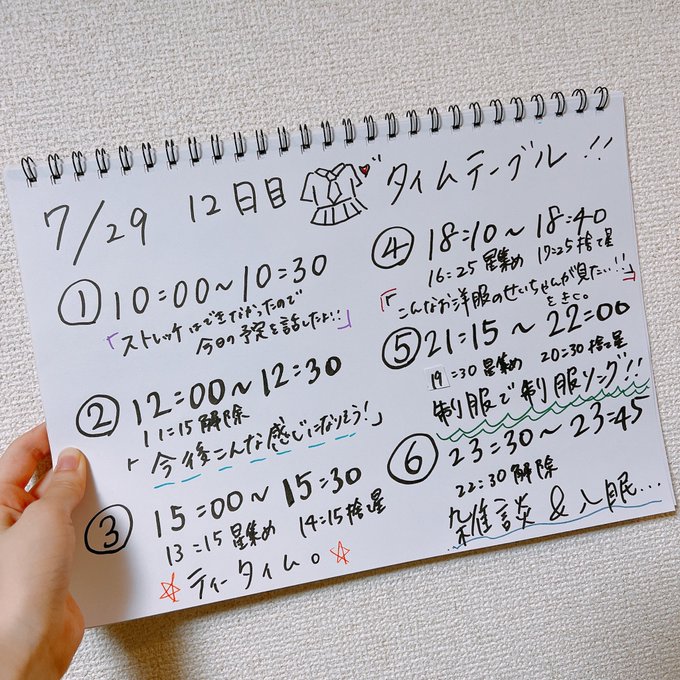 7/29 12日目 タイムテーブル!!
① 10:00〜10:30
「ストレッチはできなかったので
今日の予定を話したよ!!」
② 12:00〜12:30
11:15 解除
「今後こんな感じになりそう!」
③ 15:00〜15:30
13:15 星集め 14:15 捨て星
☆ティータイム。☆
④ 18:10〜18:40
16:25 星集め 17:25 捨て星
「こんなお洋服のせいちゃんが見たい!!」
をきく。
⑤ 21:15〜22:00
19:30 星集め 20:30 捨て星
制服で制服ソング!!
⑥ 23:30〜23:45
22:30 解除
雑談&入眠...